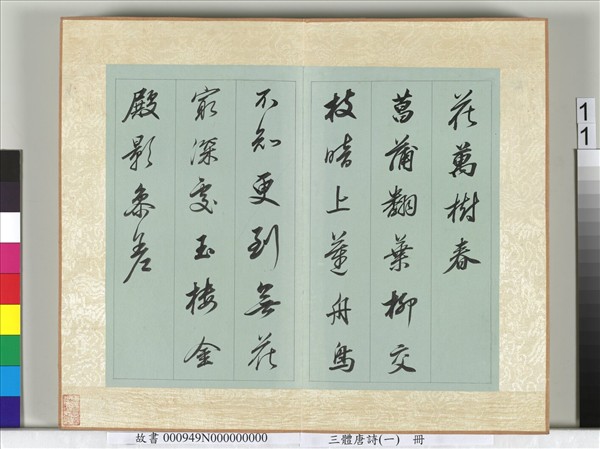 花萬樹春
菖蒲翻葉柳交
枝暗上蓮舟鳥
不知更到無花
最深處玉樓金
殿影參差
11
故書 000949N000000000
三體唐詩(一) 冊